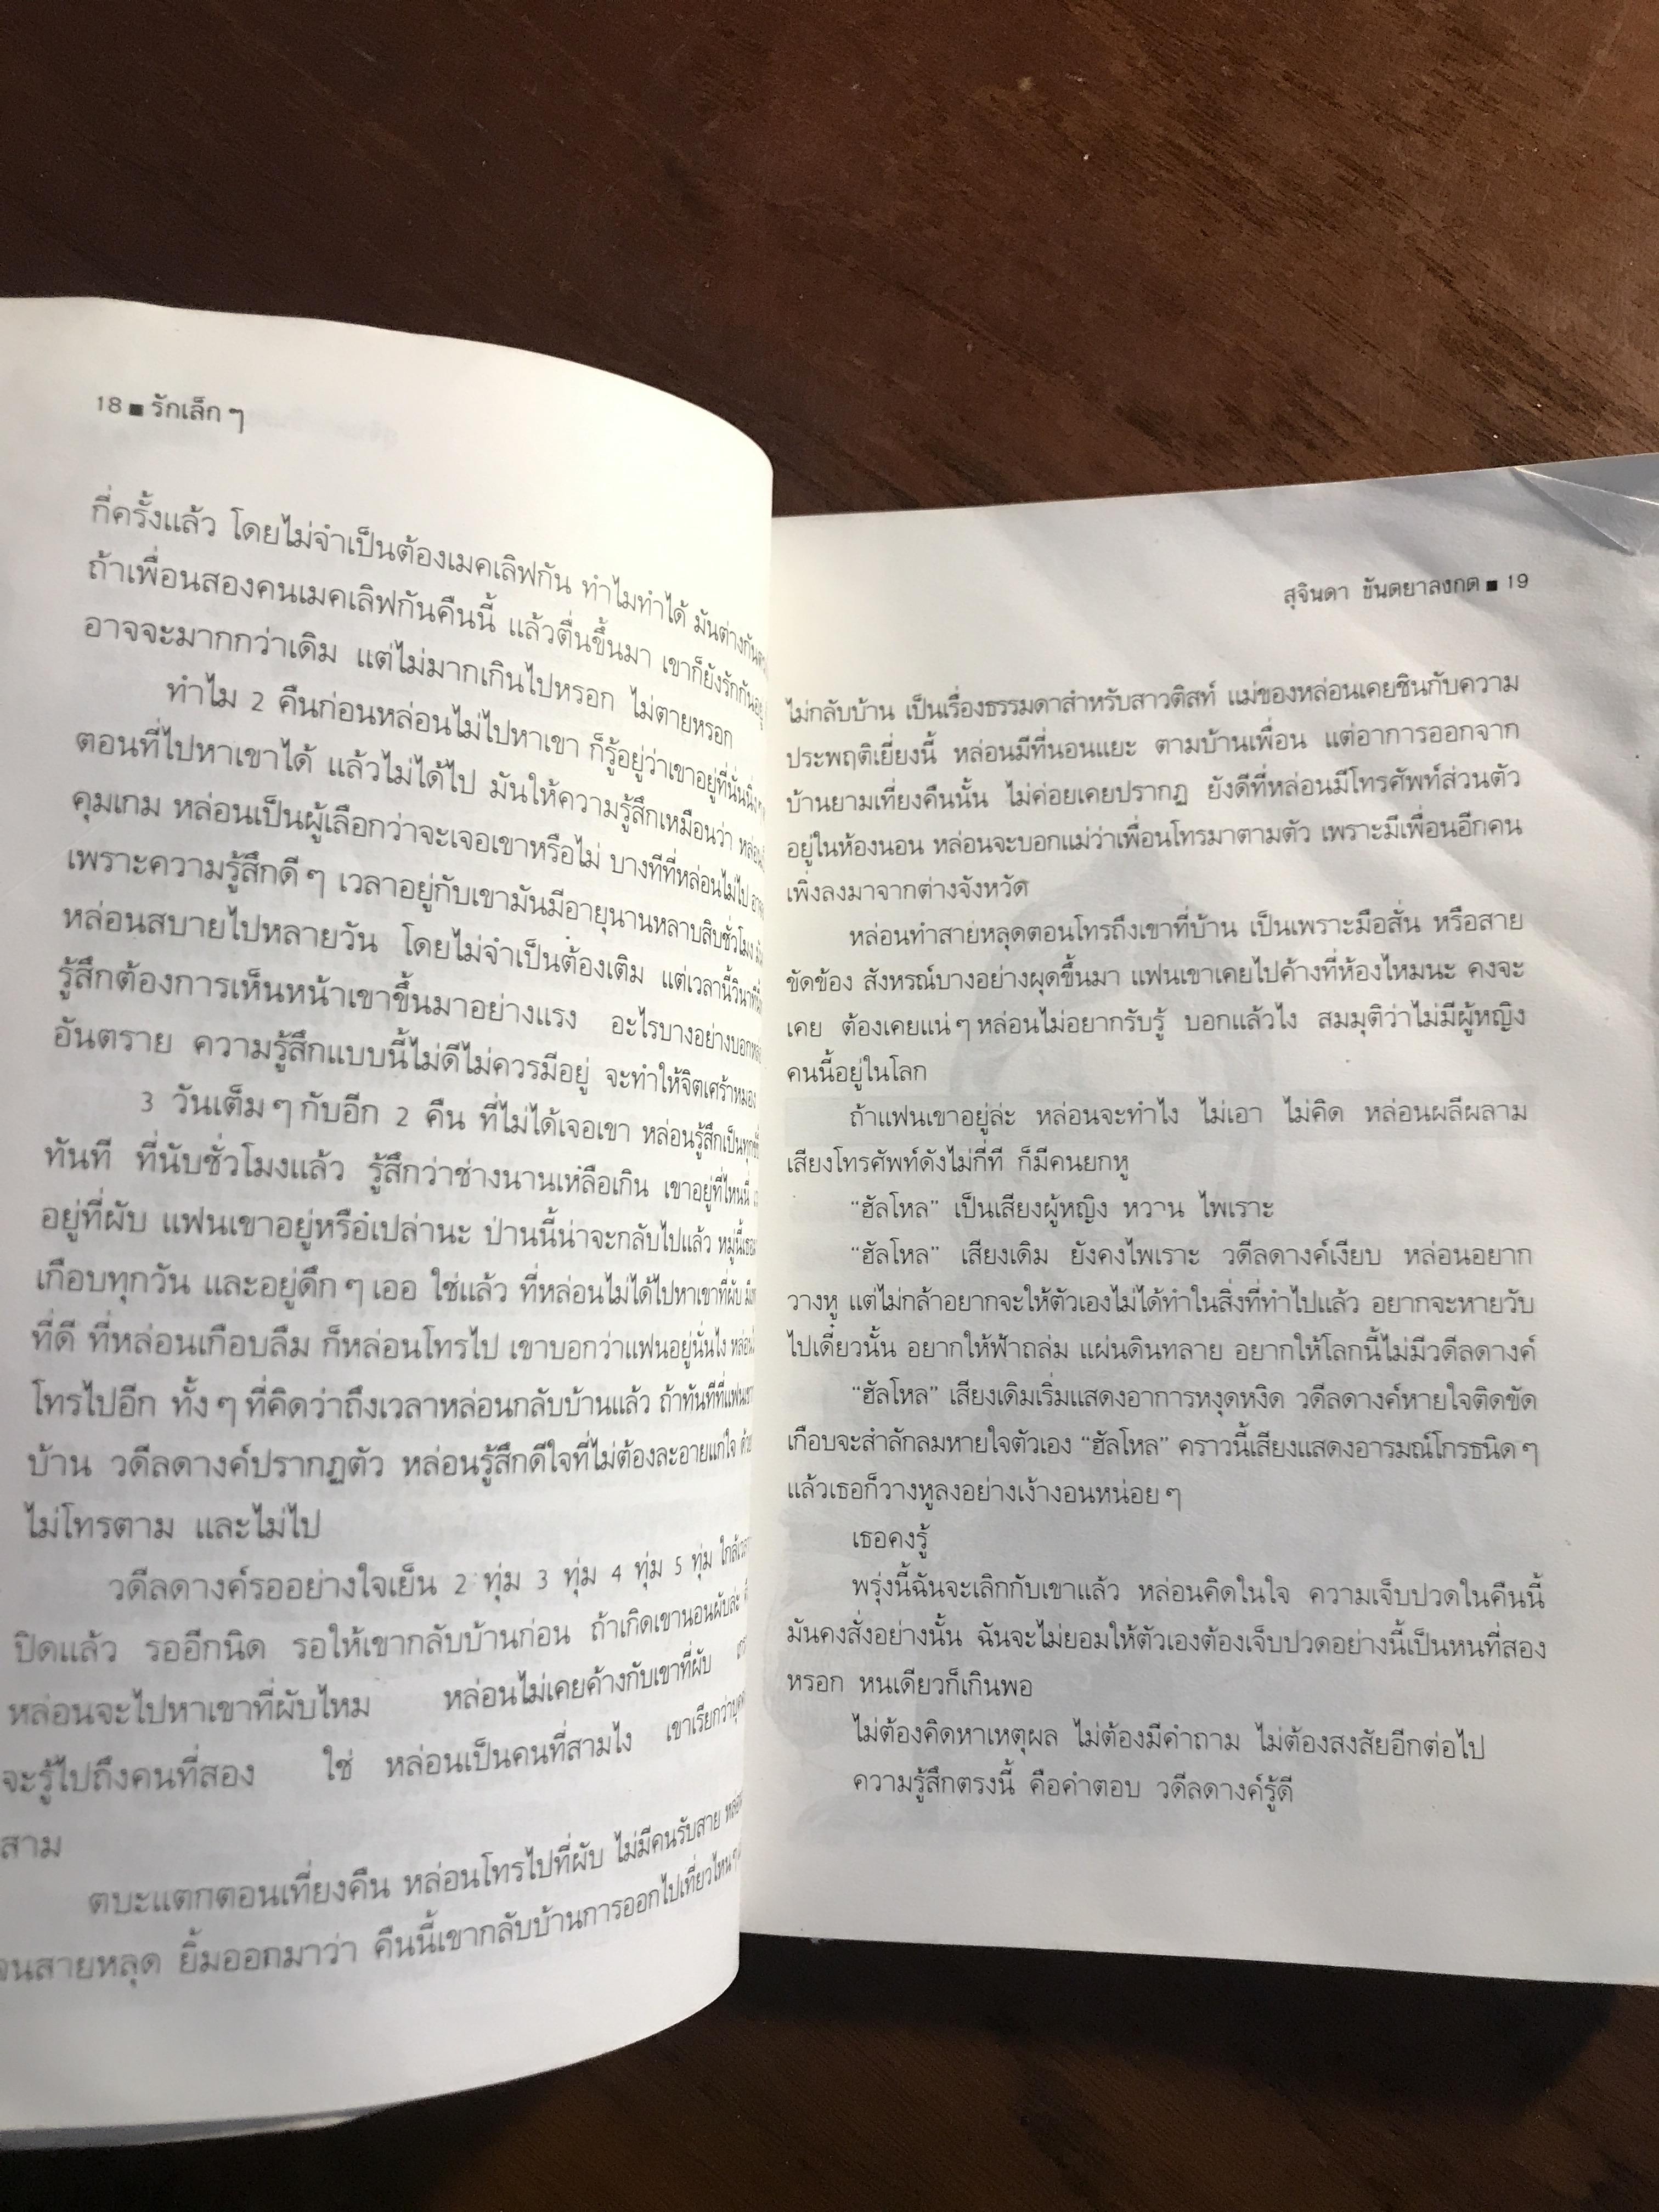 18 ■ รักเล็ก ๆ
กี่ครั้งแล้ว โดยไม่จำเป็นต้องเมคเลิฟกัน ทำไมทำได้ มันต่างกัน
ถ้าเพื่อนสองคนเมคเลิฟกันคืนนี้ แล้วตื่นขึ้นมา เขาก็ยังรักกันอยู่
อาจจะมากกว่าเดิม แต่ไม่มากเกินไปหรอก ไม่ตายหรอก
ทำไม 2 คืนก่อนหล่อนไม่ไปหาเขา ก็รู้อยู่ว่าเขาอยู่ที่นั่นนิ่ง ๆ
ตอนที่ไปหาเขาได้ แล้วไม่ได้ไป มันให้ความรู้สึกเหมือนว่า
คุมเกม หล่อนเป็นผู้เลือกว่าจะเจอเขาหรือไม่ บางทีที่หล่อนไม่ไป
เพราะความรู้สึกดี ๆ เวลาอยู่กับเขามันมีอายุนานหลาบสิบชั่วโมง
หล่อนสบายไปหลายวัน โดยไม่จำเป็นต้องเติม แต่เวลานี้วินาทีนี้
รู้สึกต้องการเห็นหน้าเขาขึ้นมาอย่างแรง อะไรบางอย่างบอก
อันตราย ความรู้สึกแบบนี้ไม่ดีไม่ควรมีอยู่ จะทำให้จิตเศร้าหมอง
3 วันเต็ม ๆ กับอีก 2 คืน ที่ไม่ได้เจอเขา หล่อนรู้สึกเป็นทุกข์ขึ้น
ทันที ที่นับชั่วโมงแล้ว รู้สึกว่าช่างนานเหลือเกิน เขาอยู่ที่ไหนนี่
อยู่ที่ผับ แฟนเขาอยู่หรือเปล่านะ ป่านนี้น่าจะกลับไปแล้ว หมู่นี้เธอ
เกือบทุกวัน และอยู่ดึก ๆ เออ ใช่แล้ว ที่หล่อนไม่ได้ไปหาเขาที่ผับ
ที่ดี ที่หล่อนเกือบลืม ก็หล่อนโทรไป เขาบอกว่าแฟนอยู่นั่นไง
โทรไปอีก ทั้ง ๆ ที่คิดว่าถึงเวลาหล่อนกลับบ้านแล้ว ถ้าทันทีที่แฟน
บ้าน วดีลดางค์ปรากฏตัว หล่อนรู้สึกดีใจที่ไม่ต้องละอายแก่ใจ
ไม่โทรตาม และไม่ไป
วดีลดางค์รออย่างใจเย็น 2 ทุ่ม 3 ทุ่ม 4 ทุ่ม 5 ทุ่ม
ปิดแล้ว รออีกนิด รอให้เขากลับบ้านก่อน ถ้าเกิดเขานอนผับล่ะ
หล่อนจะไปหาเขาที่ผับไหม หล่อนไม่เคยค้างกับเขาที่ผับ
จะรู้ไปถึงคนที่สอง ใช่ หล่อนเป็นคนที่สามไง เขาเรียกว่า
สาม
ตบะแตกตอนเที่ยงคืน หล่อนโทรไปที่ผับ ไม่มีคนรับสาย
จนสายหลุด ยิ้มออกมาว่า คืนนี้เขากลับบ้านการออกไปเที่ยวไหน ๆ
สุจินดา ขันตยาลงกต ■ 19
ไม่กลับบ้าน เป็นเรื่องธรรมดาสำหรับสาวติสท์ แม่ของหล่อนเคยชินกับความ
ประพฤติเยี่ยงนี้ หล่อนมีที่นอนแยะ ตามบ้านเพื่อน แต่อาการออกจาก
บ้านยามเที่ยงคืนนั้น ไม่ค่อยเคยปรากฏ ยังดีที่หล่อนมีโทรศัพท์ส่วนตัว
อยู่ในห้องนอน หล่อนจะบอกแม่ว่าเพื่อนโทรมาตามตัว เพราะมีเพื่อนอีกคน
เพิ่งลงมาจากต่างจังหวัด
หล่อนทำสายหลุดตอนโทรถึงเขาที่บ้าน เป็นเพราะมือสั่น หรือสาย
ขัดข้อง สังหรณ์บางอย่างผุดขึ้นมา แฟนเขาเคยไปค้างที่ห้องไหมนะ คงจะ
เคย ต้องเคยแน่ ๆ หล่อนไม่อยากรับรู้ บอกแล้วไง สมมุติว่าไม่มีผู้หญิง
คนนี้อยู่ในโลก
ถ้าแฟนเขาอยู่ล่ะ หล่อนจะทำไง ไม่เอา ไม่คิด หล่อนผลีผลาม
เสียงโทรศัพท์ดังไม่กี่ที ก็มีคนยกหู
“ฮัลโหล” เป็นเสียงผู้หญิง หวาน ไพเราะ
“ฮัลโหล” เสียงเดิม ยังคงไพเราะ วดีลดางค์เงียบ หล่อนอยาก
วางหู แต่ไม่กล้าอยากจะให้ตัวเองไม่ได้ทำในสิ่งที่ทำไปแล้ว อยากจะหายวับ
ไปเดี๋ยวนั้น อยากให้ฟ้าถล่ม แผ่นดินทลาย อยากให้โลกนี้ไม่มีวดีลดางค์
“ฮัลโหล” เสียงเดิมเริ่มแสดงอาการหงุดหงิด วดีลดางค์หายใจติดขัด
เกือบจะสำลักลมหายใจตัวเอง “ฮัลโหล” คราวนี้เสียงแสดงอารมณ์โกรธนิด ๆ
แล้วเธอก็วางหูลงอย่างเง้างอนหน่อย ๆ
เธอคงรู้
พรุ่งนี้ฉันจะเลิกกับเขาแล้ว หล่อนคิดในใจ ความเจ็บปวดในคืนนี้
มันคงสั่งอย่างนั้น ฉันจะไม่ยอมให้ตัวเองต้องเจ็บปวดอย่างนี้เป็นหนที่สอง
หรอก หนเดียวก็เกินพอ
ไม่ต้องคิดหาเหตุผล ไม่ต้องมีคำถาม ไม่ต้องสงสัยอีกต่อไป
ความรู้สึกตรงนี้ คือคำตอบ วดีลดางค์รู้ดี